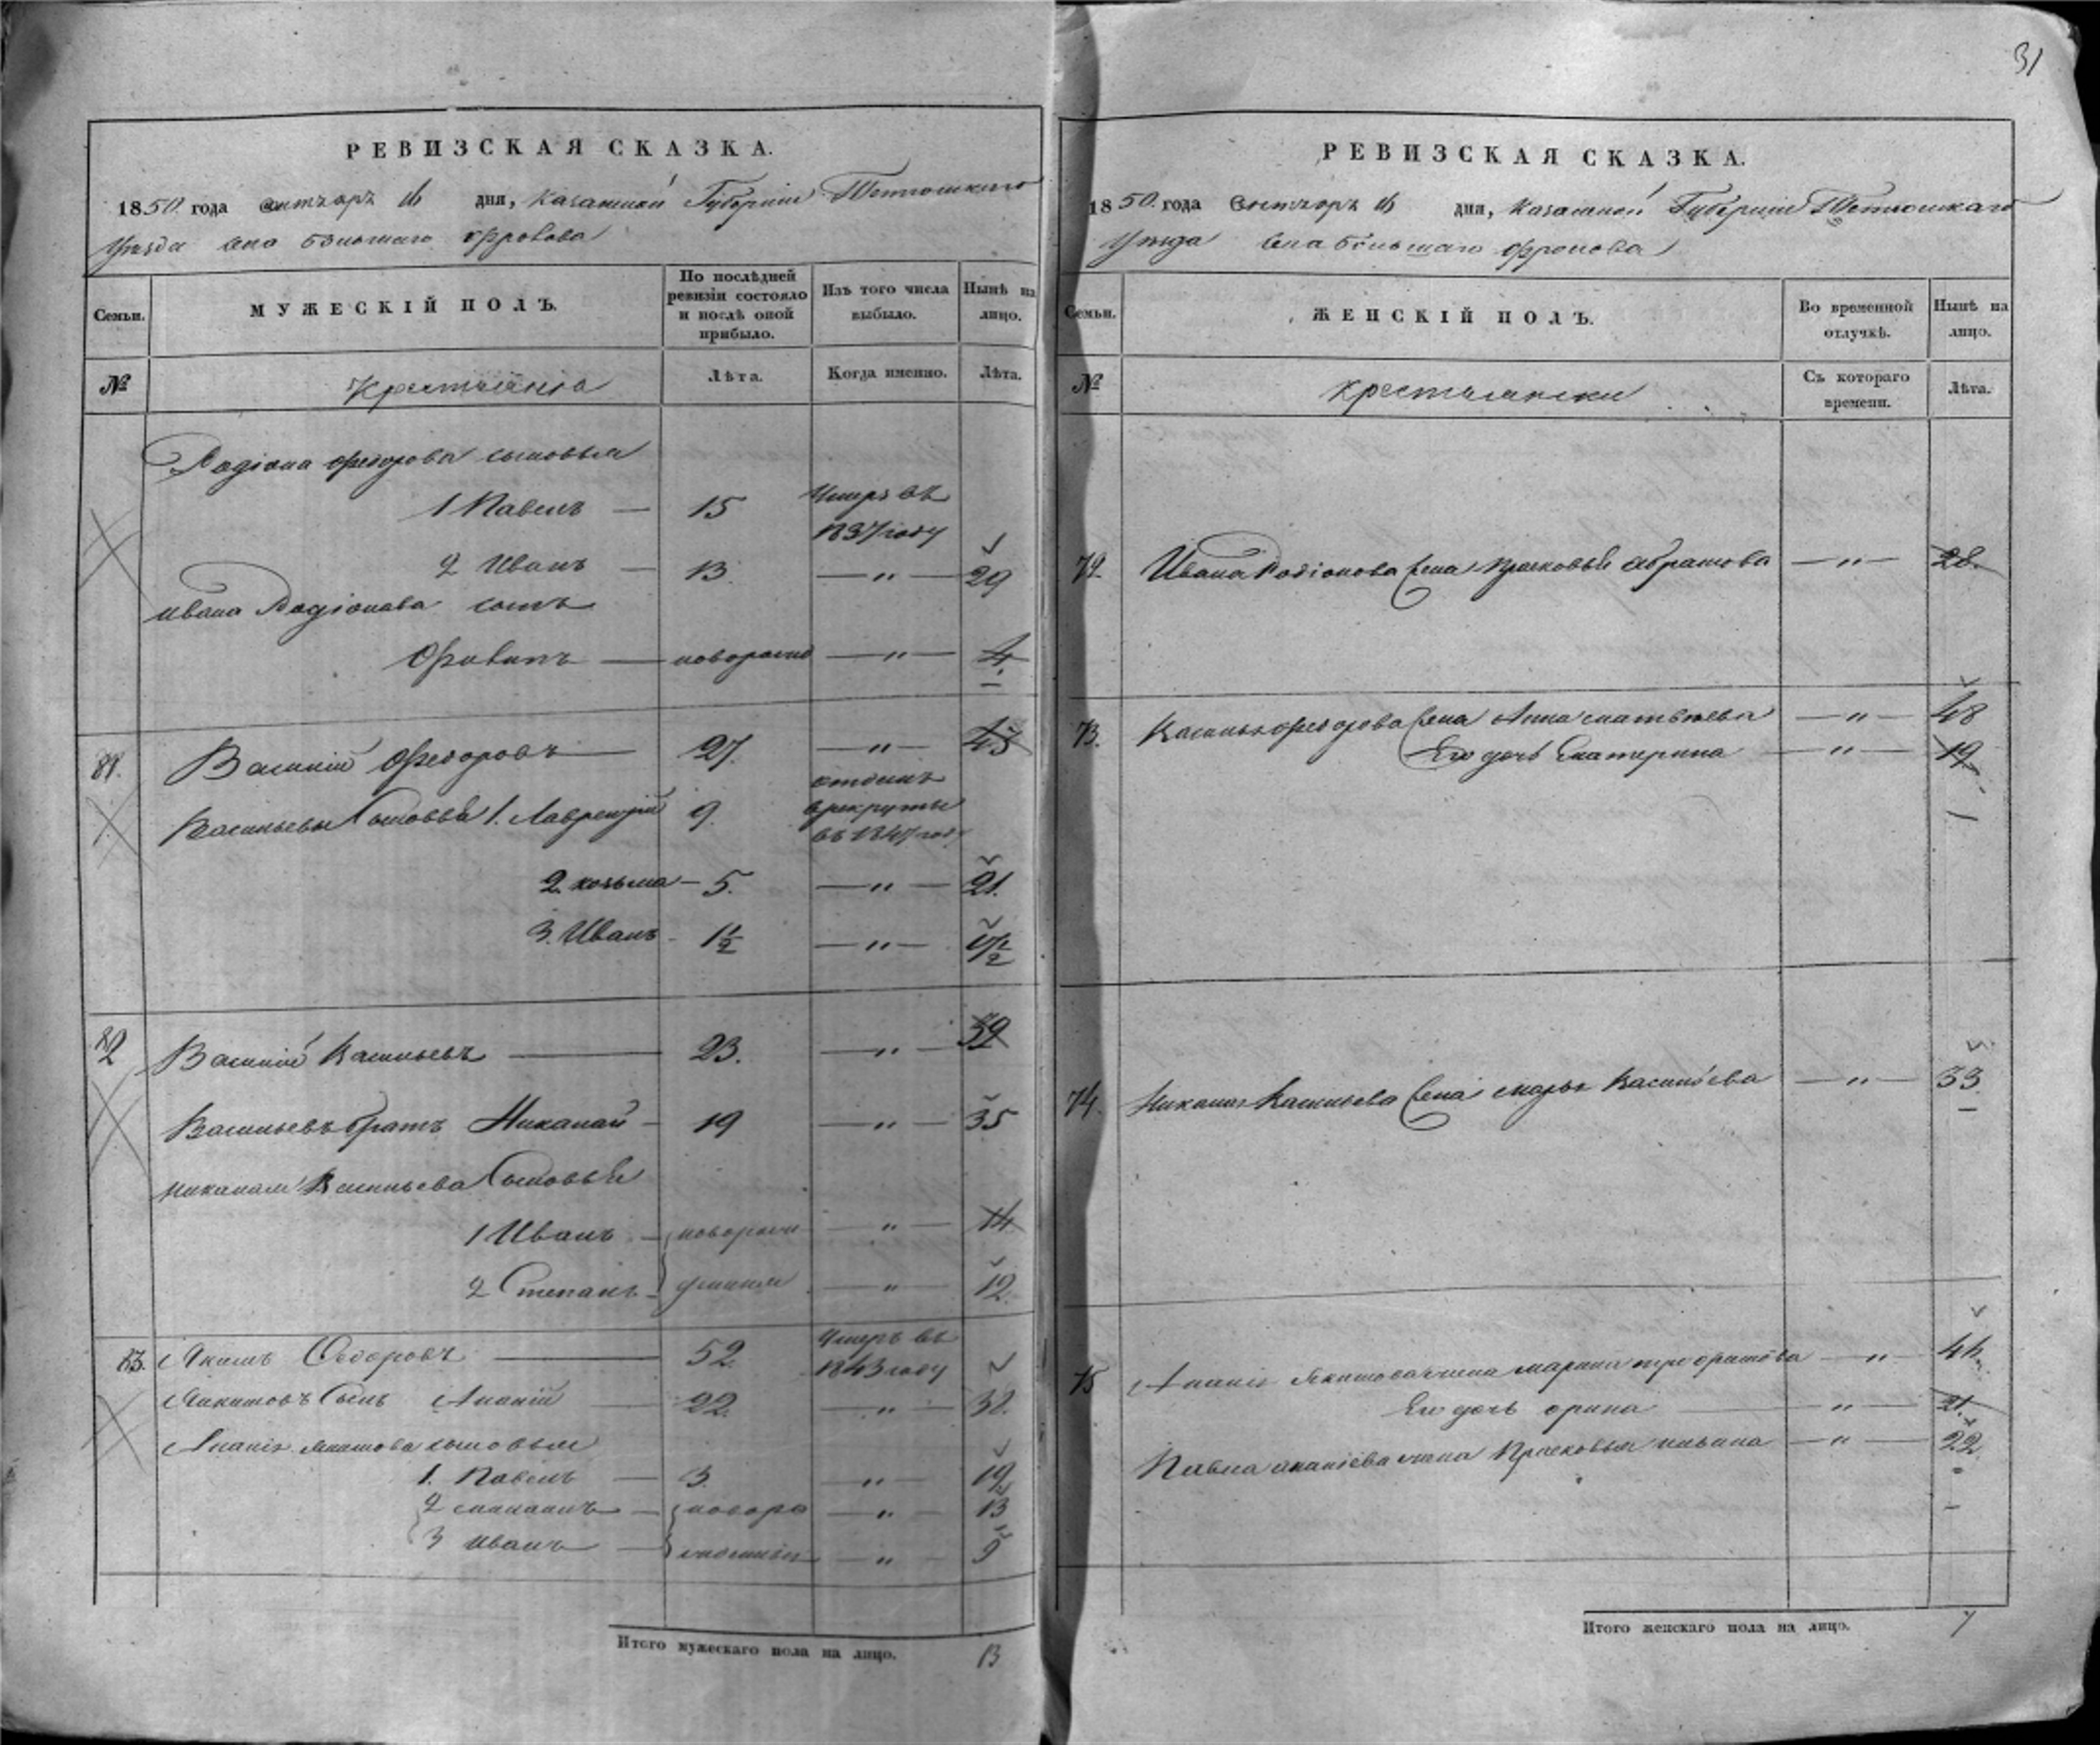 31
РЕВИЗСКАЯ СКАЗКА.
1850 года дня, Казанской Губернии Тетюшскаго
Уѣзда села большаго Фролова
Семьи.
МУЖЕСКІЙ ПОЛЪ.
По послѣдней ревизіи состояло и послѣ оной прибыло.
Изъ того числа выбыло.
Нынѣ на лицо.
№
Крестьяне
Лѣта.
Когда именно.
Лѣта.
Родіона Федорова сыновья
1 Павелъ — 15 Умеръ въ 1837 году
2 Иванъ — 13 — „ — 29
Ивана Родіонова сынъ
— новорожд — „ — 4
81. Василій Федоровъ — 27. — „ — 43
Васильевы Сыновья 1. Лаврентій 9. отданъ в рекруты въ 1847 году
2. козьма — 5. — „ — 21.
3. Иванъ — 1½ — „ — 17½
82 Василій Васильевъ — 23. — „ — 39
Васильевъ братъ Николай — 19 — „ — 35
Николая Васильева Сыновья
1 Иванъ — — „ — 14
2 Степанъ — — „ — 12
83. Якимъ Федоровъ — 52. Умеръ въ 1843 году
Якимовъ Сынъ Ананій — 22. — „ — 38.
Ананія Якимова сыновья
1. Павелъ — 3. — „ — 19
2 — новоро — „ — 13
3 Иванъ — — „ — 9
Итого мужескаго пола на лицо. 13
РЕВИЗСКАЯ СКАЗКА.
1850 года дня, Казанской Губерніи Тетюшскаго
Уѣзда Села большаго Фролова
Семьи.
ЖЕНСКІЙ ПОЛЪ.
Во временной отлучкѣ.
Нынѣ на лицо.
№
крестьянски
Съ котораго времени.
Лѣта.
72. Ивана Родіонова жена Прасковья Абрамова — „ — 28.
73. Василья Федорова жена Анна Матвѣева — „ — 48
Его дочь Екатерина — „ — 19
74. Николая Васильева жена Марья Васильева — „ — 33
75 Ананія Якимова жена Марина — „ — 44
Его дочь орина — „ — 21.
Павла ананіева жена Прасковья ильина — „ — 22
Итого женскаго пола на лицо. 7